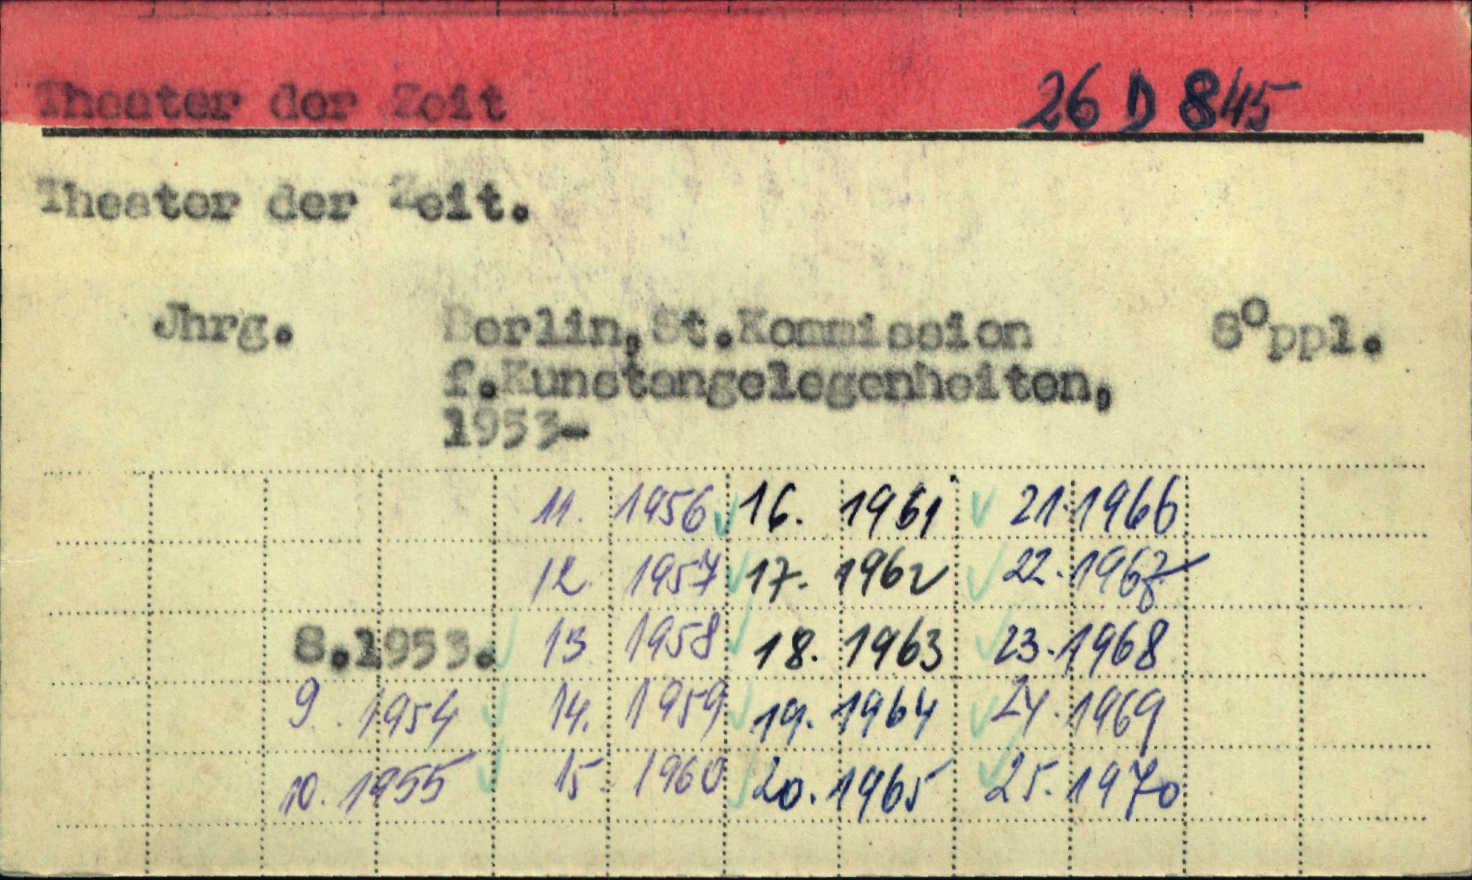 Theater der Zeit 26 D 845
Theater der Zeit.
Jhrg. Berlin, St.Kommission 8° ppl.
f.Kunstangelegenheiten,
1953-
11. 1956 16. 1961 21. 1966
12. 1957 17. 1962 22. 1967
8.1953. 13 1958 18. 1963 23. 1968
9. 1954 14. 1959 19. 1964 24. 1969
10. 1955 15 1960 20. 1965 25. 1970